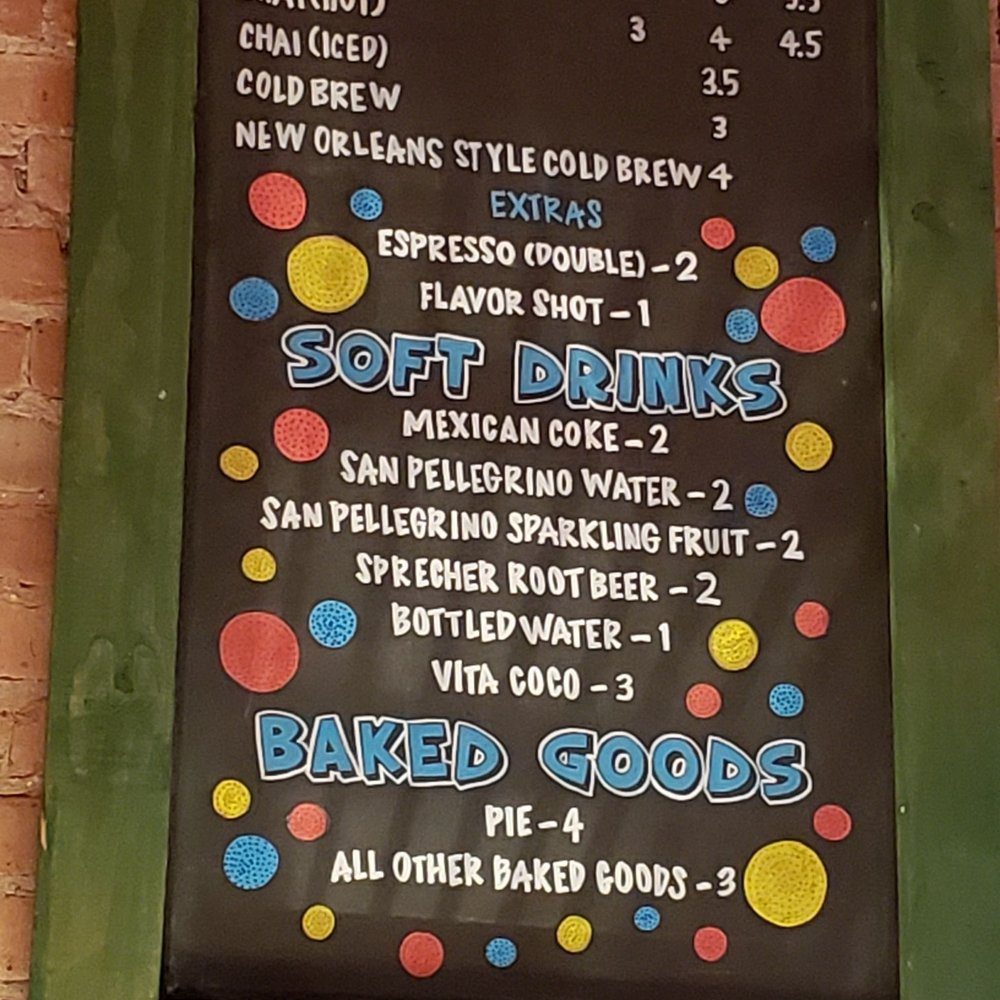 CHAI (HOT) 3 4 4.5
CHAI (ICED) 3.5
COLD BREW 3
NEW ORLEANS STYLE COLD BREW 4
EXTRAS
ESPRESSO (DOUBLE) - 2
FLAVOR SHOT - 1
SOFT DRINKS
MEXICAN COKE - 2
SAN PELLEGRINO WATER - 2
SAN PELLEGRINO SPARKLING FRUIT - 2
SPRECHER ROOT BEER - 2
BOTTLED WATER - 1
VITA COCO - 3
BAKED GOODS
PIE - 4
ALL OTHER BAKED GOODS - 3